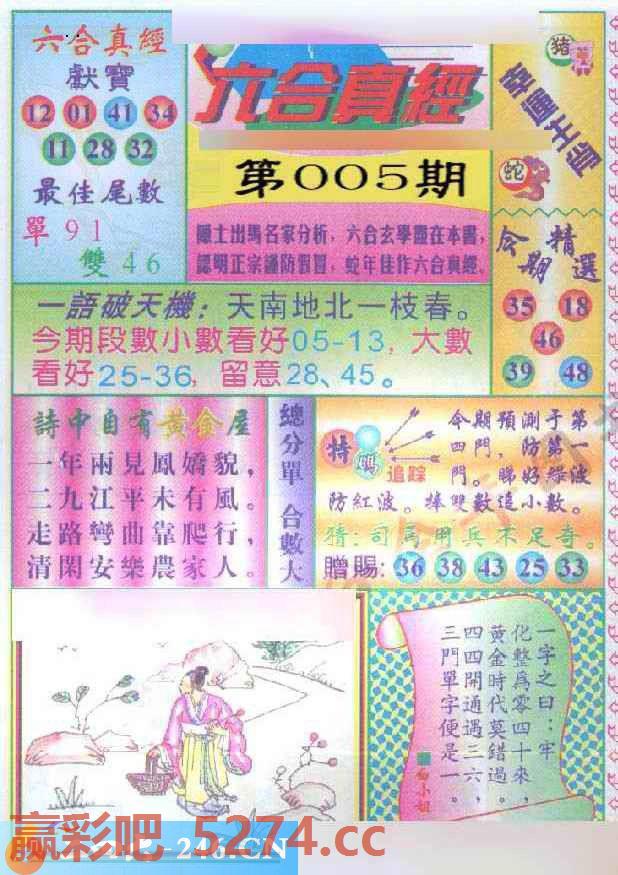 六合真經
獻寶
12 01 41 34
11 28 32
最佳尾數
單 91
雙 46
六合真經
第005期
隱士出馬名家分析，六合玄學盡在本書，
認明正宗謹防假冒，蛇年佳作六合真經。
豬
蛇
今期精選
35 18
46
39 48
一語破天機：天南地北一枝春。
今期段數小數看好05-13，大數
看好25-36，留意28、45。
詩中自有黃金屋
一年兩見鳳嬌貌，
二九江平未有風。
走路彎曲靠爬行，
清閑安樂農家人。
總分單 合數大
特碼追踪
今期預測于第
四門，防第一
門。睇好綠波
防紅波。捧雙數追小數。
猜：司馬用兵不足奇。
贈賜：36 38 43 25 33
一字之曰：牢
化整為零四十來，
黃金時代莫錯過。
四四開通遇三六，
三門單字便是一。
白小姐
赢彩吧 5274.cc
246.CN